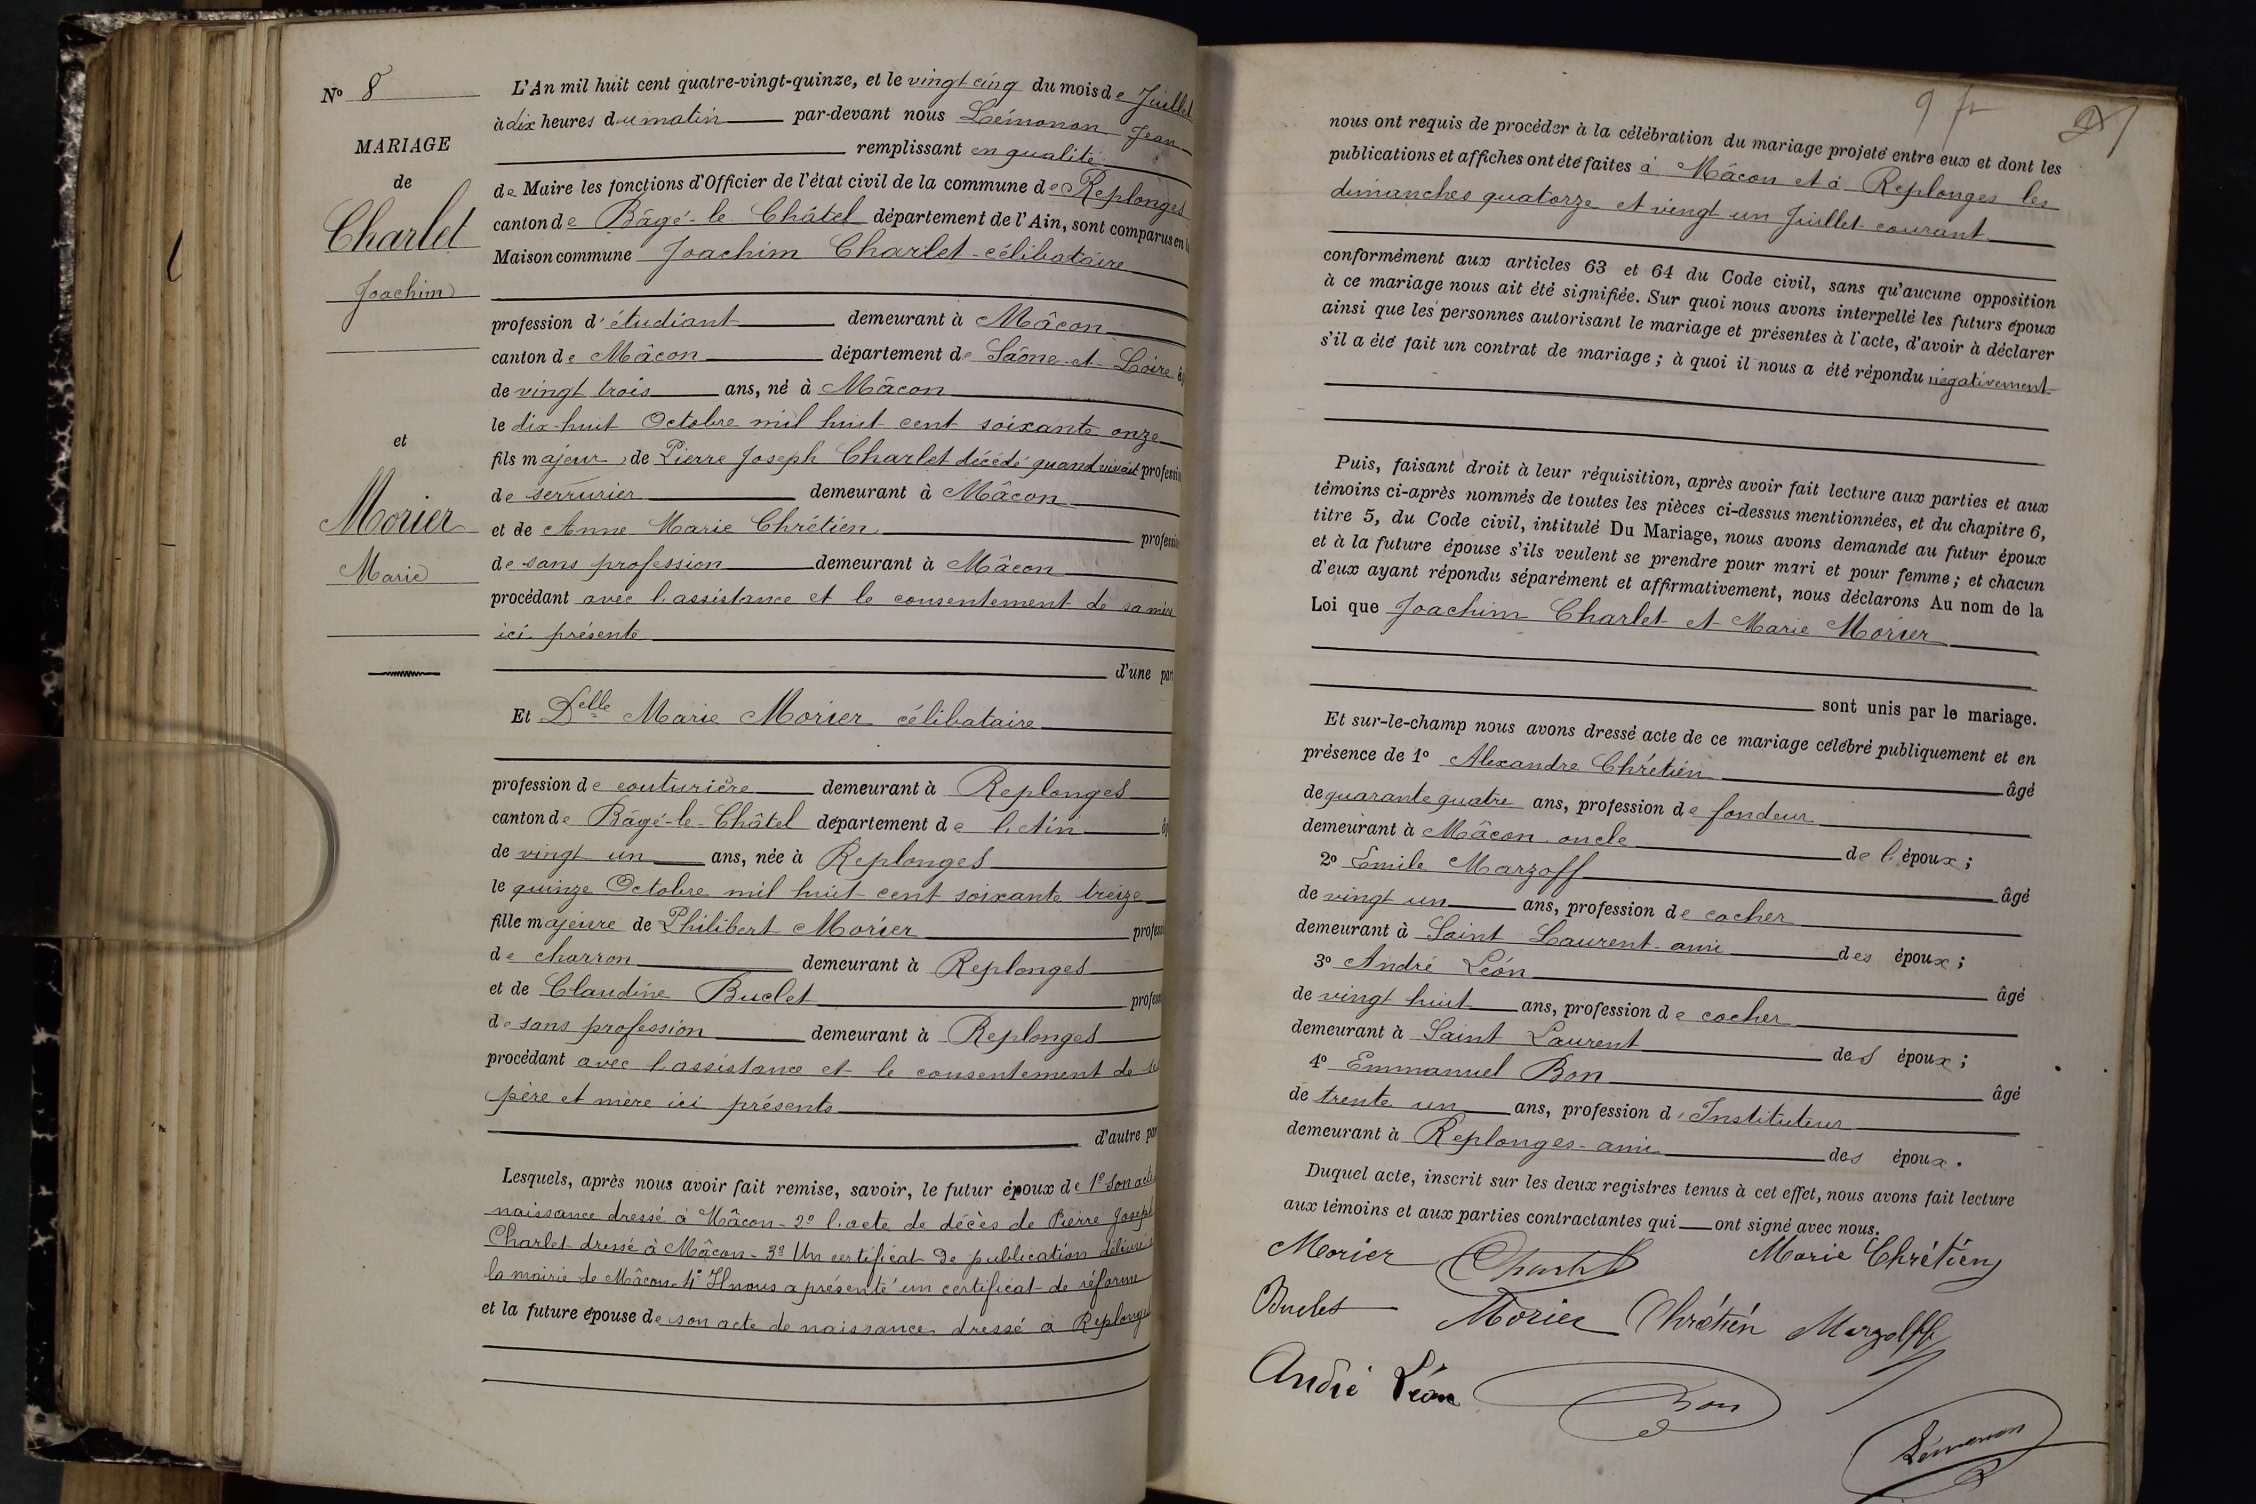 N° 8
MARIAGE
de
Charlet
Joachim
et
Morier
Marie
L'An mil huit cent quatre-vingt-quinze, et le vingt cinq du mois de Juillet
à dix heures du matin par-devant nous Lémonon Jean
remplissant en qualité
de Maire les fonctions d'Officier de l'état civil de la commune de Replonges
canton de Bâgé-le-Châtel département de l'Ain, sont comparus en la
Maison commune Joachim Charlet célibataire
profession d'étudiant demeurant à Mâcon
canton de Mâcon département de Saône-et-Loire
de vingt trois ans, né à Mâcon
le dix-huit Octobre mil huit cent soixante onze
fils majeur, de Pierre Joseph Charlet décédé quand vivait profession
de serrurier demeurant à Mâcon
et de Anne Marie Chrétien profession
de sans profession demeurant à Mâcon
procédant avec l'assistance et le consentement de sa mère
ici présente
d'une part
Et Delle Marie Morier célibataire
profession de couturière demeurant à Replonges
canton de Bâgé-le-Châtel département de l'Ain
de vingt un ans, née à Replonges
le quinze Octobre mil huit cent soixante treize
fille majeure de Philibert Morier profess
de charron demeurant à Replonges
et de Claudine Buclet profess
de sans profession demeurant à Replonges
procédant avec l'assistance et le consentement de
père et mère ici présents
d'autre par
Lesquels, après nous avoir fait remise, savoir, le futur époux de 1° Son acte
naissance dressé à Mâcon - 2° l'acte de décès de Pierre Joseph
Charlet dressé à Mâcon - 3° Un certificat de publication délivré
la mairie de Mâcon - 4° Il nous a présenté un certificat de réforme
et la future épouse de son acte de naissance dressé à Replonges
9 fr
nous ont requis de procéder à la célébration du mariage projeté entre eux et dont les
publications et affiches ont été faites à Mâcon et à Replonges les
dimanches quatorze et vingt un Juillet courant
conformément aux articles 63 et 64 du Code civil, sans qu'aucune opposition
à ce mariage nous ait été signifiée. Sur quoi nous avons interpellé les futurs époux
ainsi que les personnes autorisant le mariage et présentes à l'acte, d'avoir à déclarer
s'il a été fait un contrat de mariage ; à quoi il nous a été répondu négativement
Puis, faisant droit à leur réquisition, après avoir fait lecture aux parties et aux
témoins ci-après nommés de toutes les pièces ci-dessus mentionnées, et du chapitre 6,
titre 5, du Code civil, intitulé Du Mariage, nous avons demandé au futur époux
et à la future épouse s'ils veulent se prendre pour mari et pour femme ; et chacun
d'eux ayant répondu séparément et affirmativement, nous déclarons Au nom de la
Loi que Joachim Charlet et Marie Morier
sont unis par le mariage.
Et sur-le-champ nous avons dressé acte de ce mariage célébré publiquement et en
présence de 1° Alexandre Chrétien âgé
de quarante quatre ans, profession de fondeur
demeurant à Mâcon oncle de l'époux ;
2° Emile Marzoff âgé
de vingt un ans, profession de cocher
demeurant à Saint Laurent ami des époux ;
3° André Léon âgé
de vingt huit ans, profession de cocher
demeurant à Saint Laurent des époux ;
4° Emmanuel Bon âgé
de trente un ans, profession d'Instituteur
demeurant à Replonges ami des époux.
Duquel acte, inscrit sur les deux registres tenus à cet effet, nous avons fait lecture
aux témoins et aux parties contractantes qui ont signé avec nous.
Morier Charlet Marie Chrétien
Buclet Morier Chrétien Marzolff
André Léon Bon
Lémonon